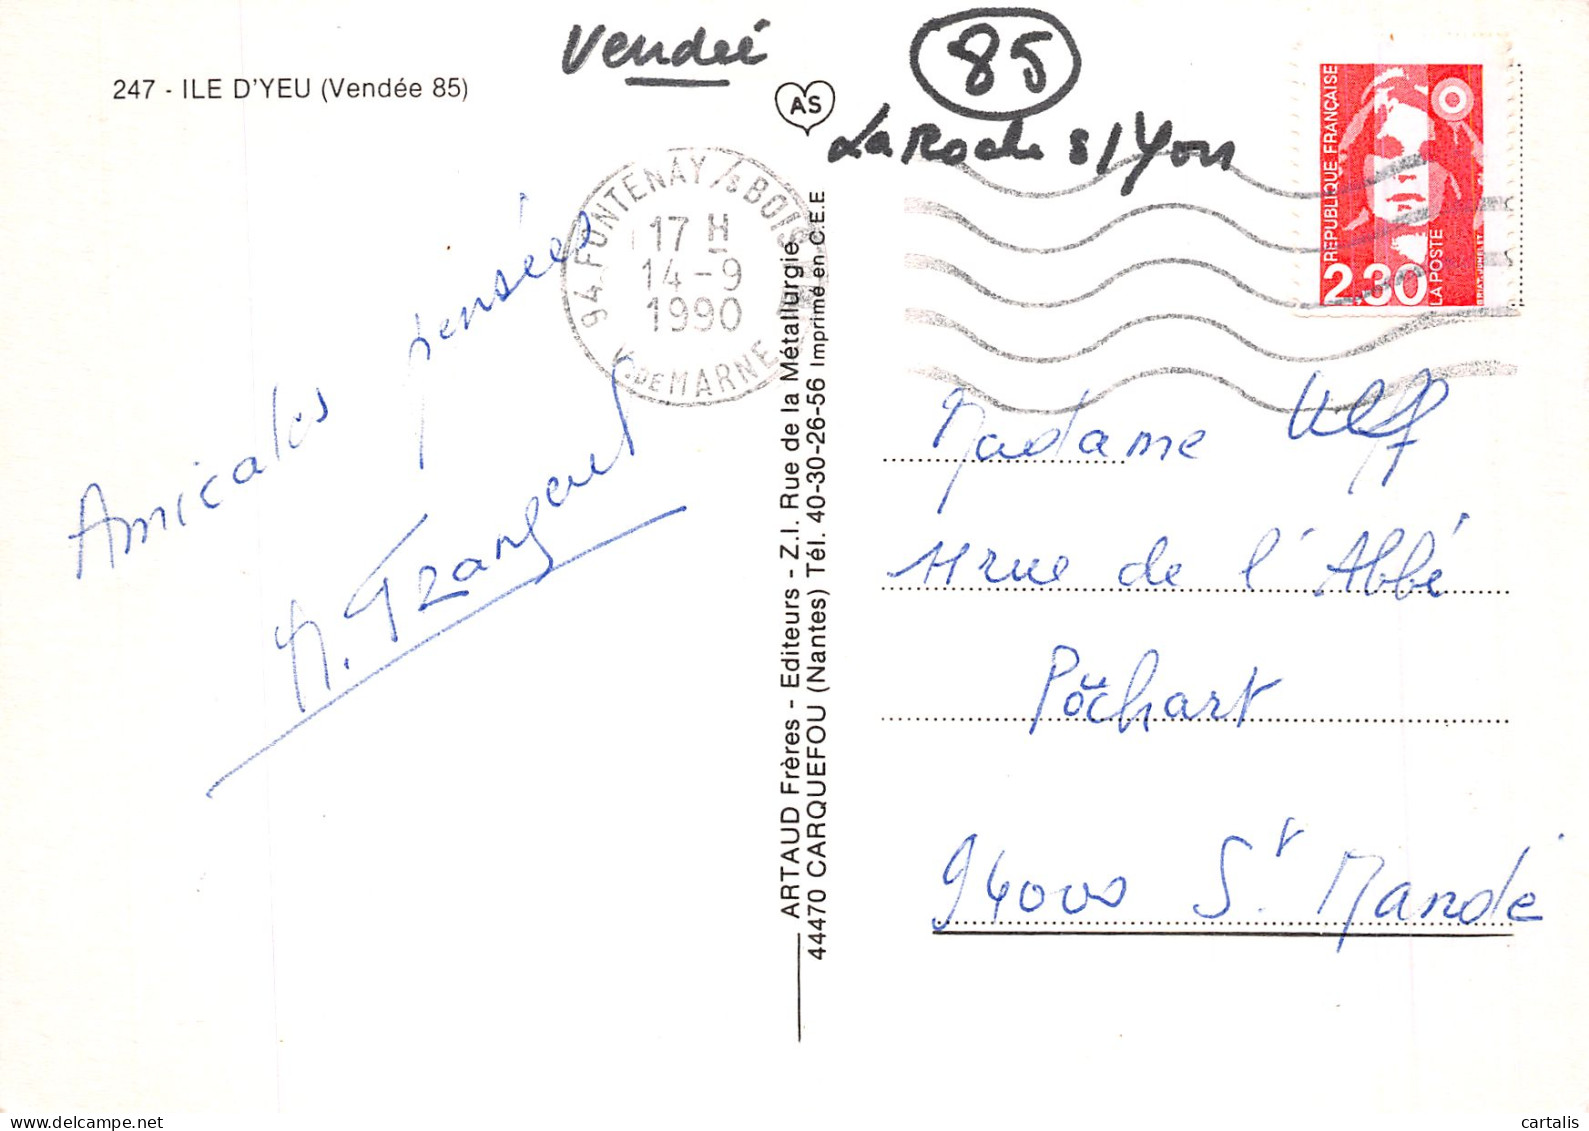 Vendée
85
La Roche s/Yon
247 - ILE D'YEU (Vendée 85)
AS
94 FONTENAY /s BOIS
17 H
14-9
1990
V. DE MARNE
REPUBLIQUE FRANÇAISE
2,30
LA POSTE
Amicales pensées
ARTAUD Frères - Editeurs - Z.I. Rue de la Métallurgie
44470 CARQUEFOU (Nantes) Tél. 40-30-26-56 Imprimé en C.E.E
Madame
11 rue de l'Abbé
Pochart
94000 St. Mandé
cartalis